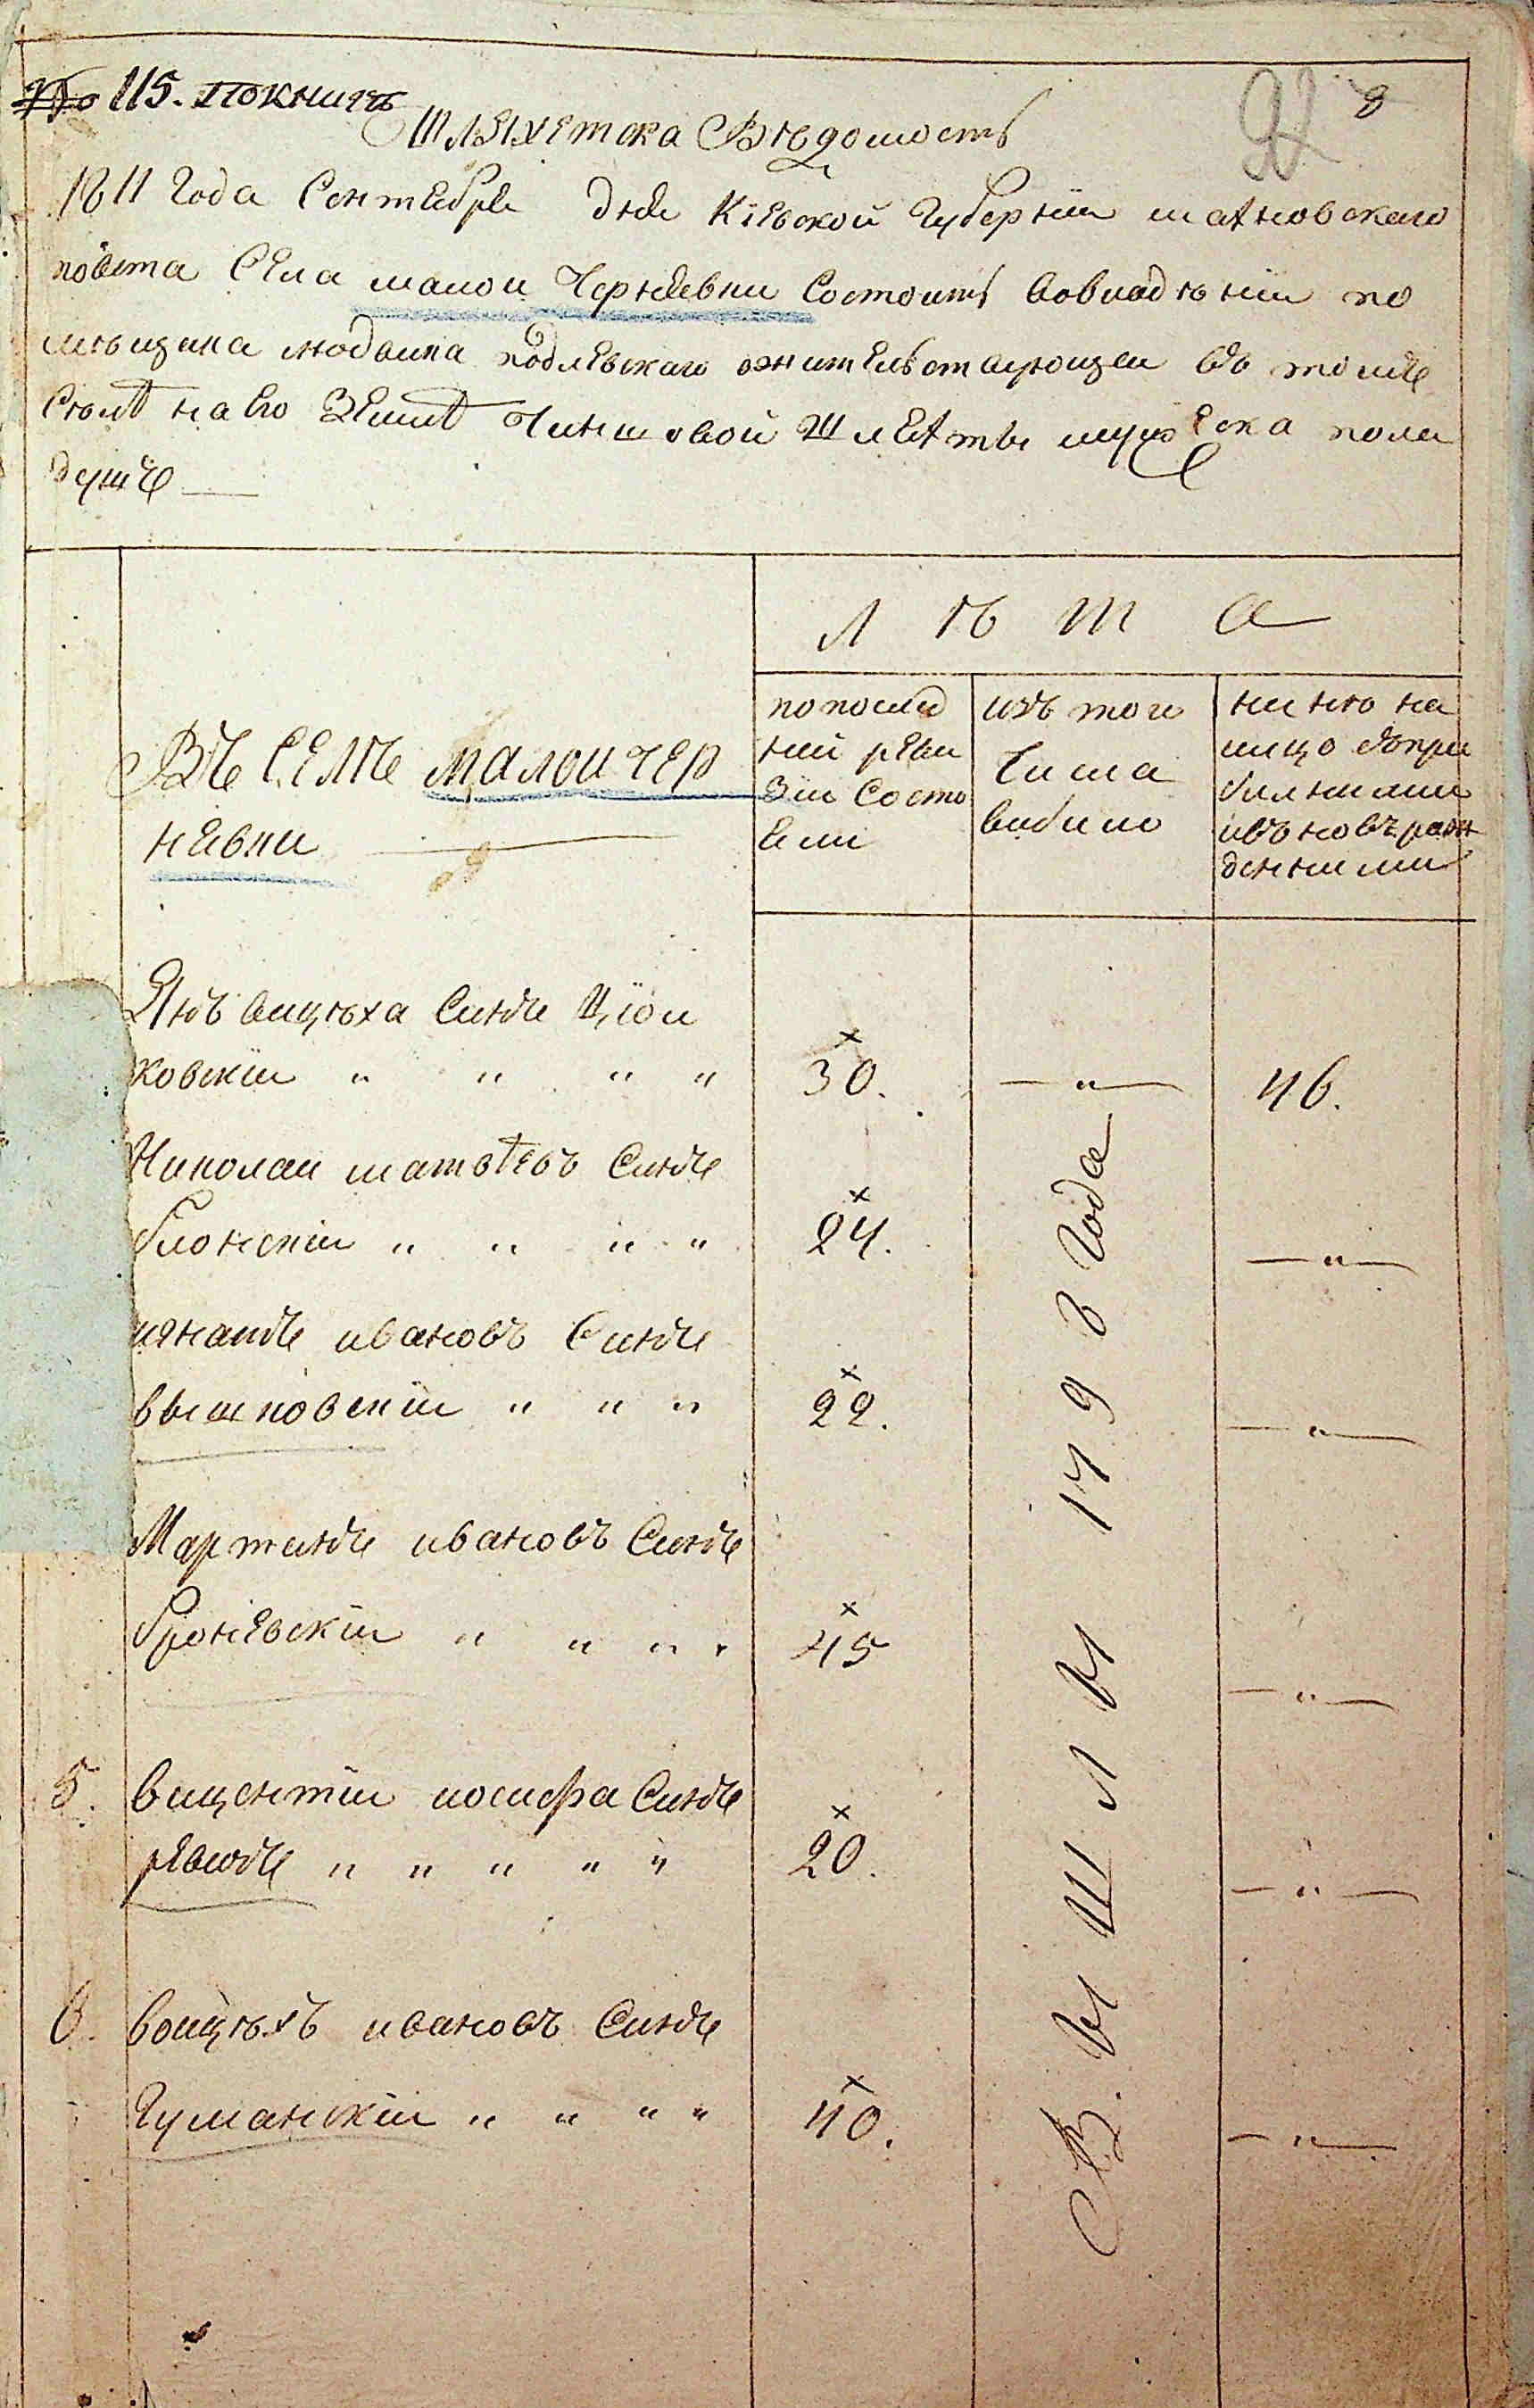 115. по книгѣ
Шляхетска Вѣдомость
92 8
1811 года Сентебря дня Кіевской губерніи махновскаго
повѣта Села малой Чернявки Состоитъ вовладѣніи по
мѣщика людвика подлевскаго ожителствующей въ томъ
Селѣ на его Землѣ Чиншовой Шляхты мужеска пола
душъ
Лѣта
Въ Селѣ малой чер
нявки
попослѣд
ней реви
зіи Состо
яли
изъ того
Числа
выбило
ныне на
лицо сопри
былными
изъ новъ рож
денными
Янъ вицѣха Синъ Ціой
ковскій " " " " 30. — " — 46.
Николай матвѣевъ Синъ
блонскій " " " " 24. — " —
игнатъ ивановъ Синъ
вышковскій " " " 22. — " —
Мартинъ ивановъ Синъ
броневскій " " " " 45 — " —
5. вицентій иосифа Синъ
" " " " " 20. — " —
6. воицѣхъ ивановъ Синъ
Гуманскій " " " " 40. — " —
Вышлы 1798 года